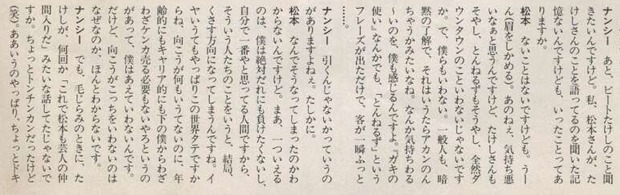 ナンシー　あと、ビートたけしのこと聞
きたいんですけど。私、松本さんが、た
けしさんのことを語ってるのを聞いた記
憶ないんですけども、いったことってあ
りますか。
松本　ないことはないですけども。うー
ん（眉をしかめる）。あのねえ、気持ち悪
いなぁと思うんですけど、たけしさんも
そやし、とんねるずもそうやし、全然ダ
ウンタウンのこといわないじゃないです
か。で、僕らもいわない。一般人も、暗
黙の了解で、それはいうたらアカンのん
ちゃうかみたいなね。なんか気持ちわる
～いのを、僕も感じるんですよ。『ガキの
使い』なんかでも、「とんねるず」という
フレーズが出ただけで、客が一瞬ふっと
……。
ナンシー　引くんじゃないかっていうの
がありますよねえ。たしかに。
松本　なんでそうなってしまうたのかわ
からないんですけど、まあ、ついえる
のは、僕は絶対だれにも負けたくないし、
自分で一番やと思ってる人間ですから、
そういう人たちのことをいうと、結局、
くさす方向になってしまうんですね。イ
ヤいうてもやっぱりこの世界タテですか
らね、向こうが何もいうてないのに、年
齢的にもキャリア的にも下の僕からわざ
わざケンカ売る必要もないやろというの
があって、僕はあえていわないんです。
だけど、向こうがこっちをいわないのは
なぜなのか、ほんとわからないです。
ナンシー　でも、毛じらみのときに、た
けしが、何回か「これで松本も芸人の仲
間入りだ」みたいな話してたじゃないで
すか。ちょっとトンチンカンだったけど
（笑）。ああいうのやっぱり、ちょっとドキ